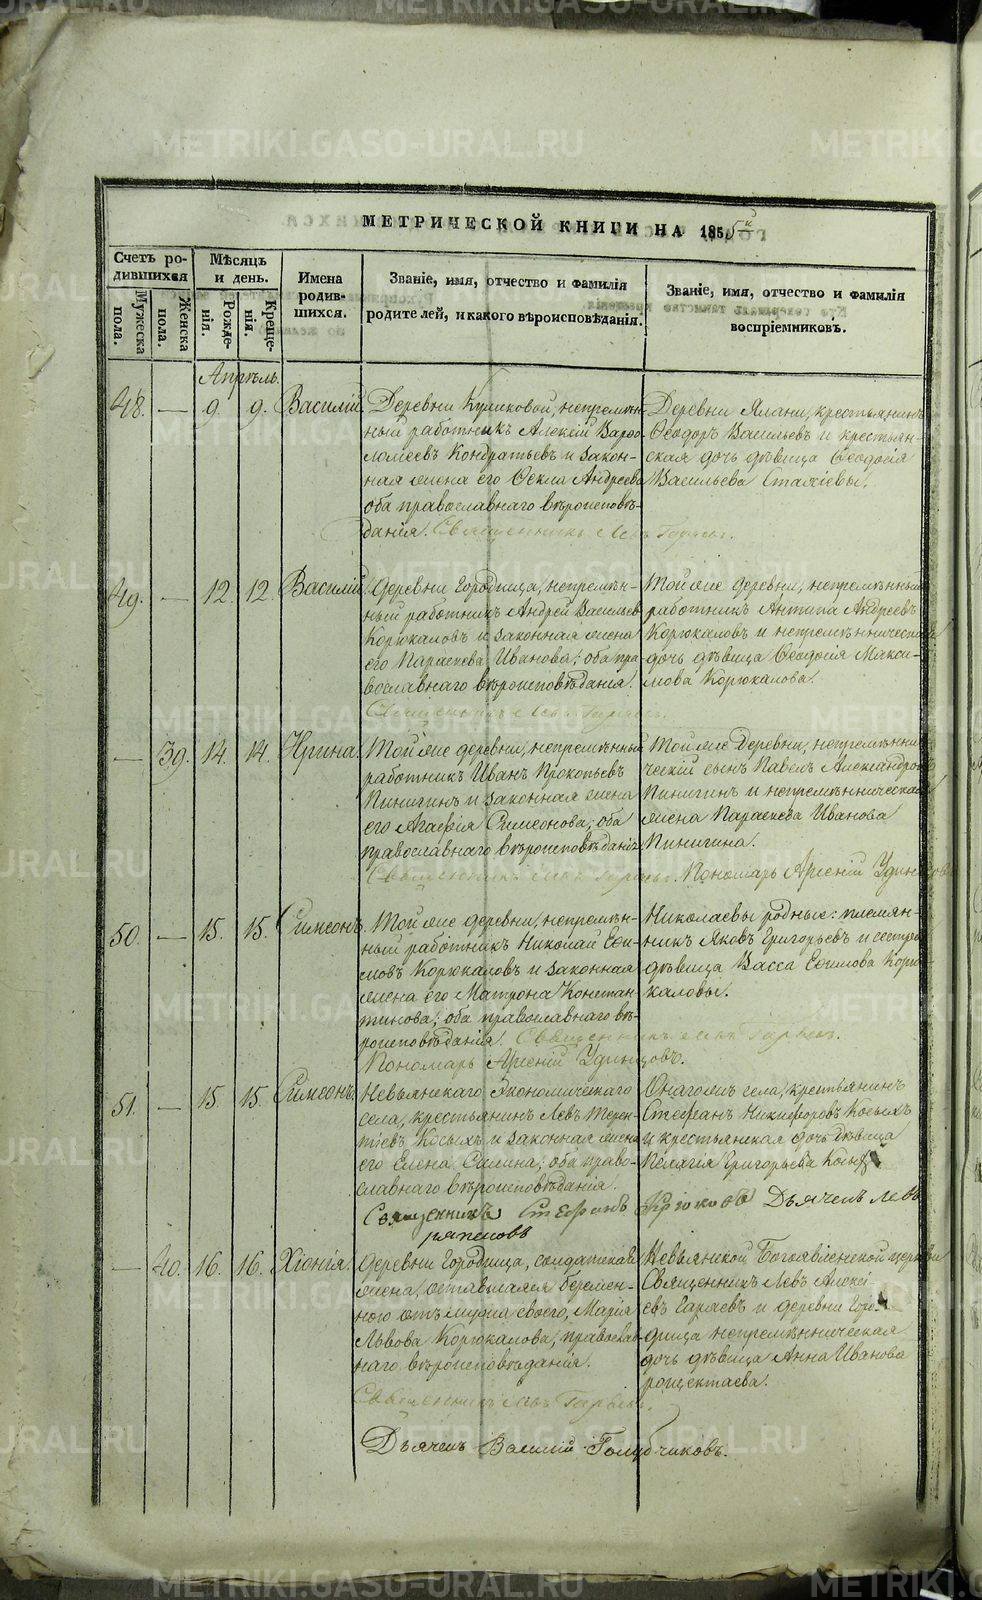 МЕТРИЧЕСКОЙ КНИГИ НА 1855й
Счетъ ро-
дившихся
Мужеска пола.
Женска пола.
Мѣсяцъ
и день.
Рожде-
нія.
Креще-
нія.
Имена
родив-
шихся.
Званіе, имя, отчество и фамилія
родителей, и какого вѣроисповѣданія.
Званіе, имя, отчество и фамилія
воспріемниковъ.
Апрѣль.
48. — 9. 9. Василій.
Деревни Куликовой, непремѣн-
ный работникъ Алексій Варѳо-
ломеевъ Кондратьевъ и закон-
ная жена его Ѳекла Андреева
оба православнаго вѣроисповѣ-
данія. Священникъ Левъ Гаряевъ.
Деревни Ялани, крестьянинъ
Ѳеодоръ Васильевъ и крестьян-
ская дочь дѣвица Ѳеодосія
Васильева
49. — 12. 12. Василій.
Деревни Городища, непремѣн-
ный работникъ Андрей Васильев
Корюкаловъ и законная жена
его Параскева Иванова; оба пра-
вославнаго вѣроисповѣданія.
Священникъ Левъ Гаряевъ.
Той же деревни, непремѣнный
работникъ Антипа Андреевъ
Корюкаловъ и непремѣнническая
дочь дѣвица Ѳеодосія Макси-
мова Корюкалова.
— 39. 14. 14. Ирина.
Той же деревни, непремѣнный
работникъ Иванъ Прокопьевъ
Пинигинъ и законная жена
его Агафія Симеонова; оба
православнаго вѣроисповѣданія.
Священникъ Левъ Гаряевъ. Пономарь Арсеній Удинцовъ.
Той же деревни, непремѣнни-
ческій сынъ Павелъ Александровъ
Пинигинъ и непремѣнническая
жена Параскева Иванова
Пинигина.
50. — 15. 15. Симеонъ.
Той же деревни, непремѣн-
ный работникъ Николай Ефи-
мовъ Корюкаловъ и законная
жена его Матрона Констан-
тинова; оба православнаго вѣ-
роисповѣданія. Священникъ Левъ Гаряевъ.
Пономарь Арсеній Удинцовъ.
Николаевы родные: племян-
никъ Яковъ Григорьевъ и сестра
дѣвица Васса Ефимова Корю-
каловы.
51. — 15. 15. Симеонъ.
Невьянскаго Экономическаго
села, крестьянинъ Левъ Терен-
тіевъ Косыхъ и законная жена
его Елена Силина; оба право-
славнаго вѣроисповѣданія.
Священникъ Стефанъ Крюковъ Дьячекъ Левъ
Онаго жъ села, крестьянинъ
Стефанъ Никифоровъ Косыхъ
и крестьянская дочь дѣвица
Пелагія Григорьева Косыхъ
— 40. 16. 16. Хіонія.
Деревни Городища, солдатская
жена, оставшаяся беремен-
ною отъ мужа своего, Марія
Львова Корюкалова, православ-
наго вѣроисповѣданія.
Священникъ Левъ Гаряевъ.
Дьячекъ Василій Голубчиковъ.
Невьянской Богоявленской церкви
Священникъ Левъ Алексі-
евъ Гаряевъ и деревни Горо-
дища непремѣнническая
дочь дѣвица Анна Иванова
METRIKI.GASO-URAL.RU